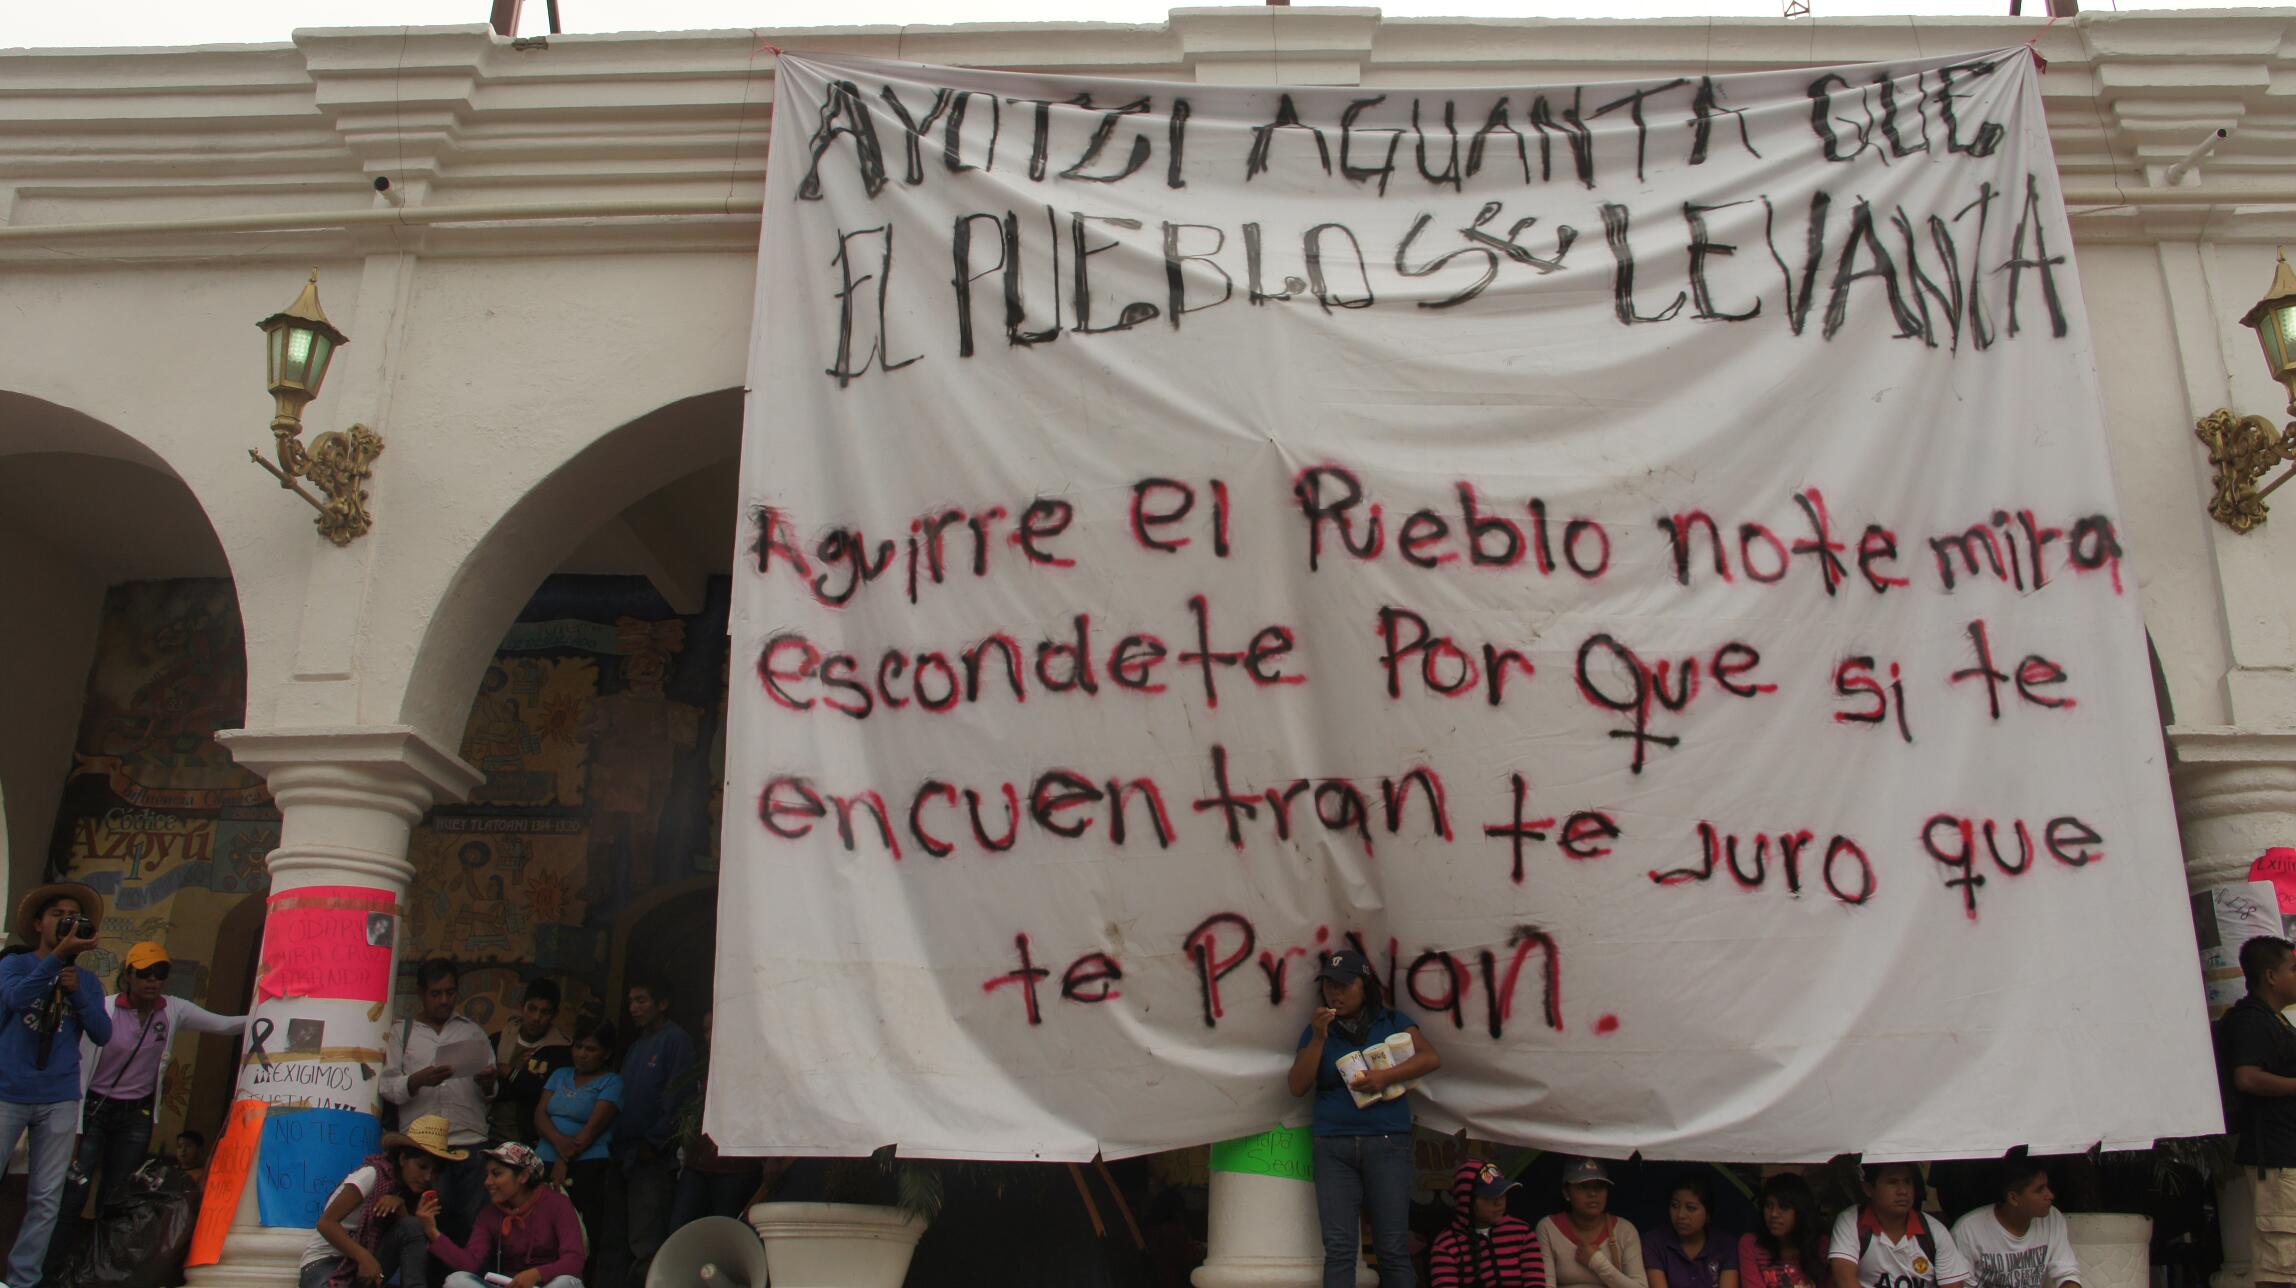 AYOTZI AGUANTA QUE
EL PUEBLO se LEVANTA
Aguirre el Pueblo no te mira
escondete Por que si te
encuentran te Juro que
te Privan.
Códice
Azoyú
1
HUEY TLATOANI
ODARY
MIRA CRUZ
¡¡¡EXIGIMOS
JUSTICIA!!!
NO TE CA
No